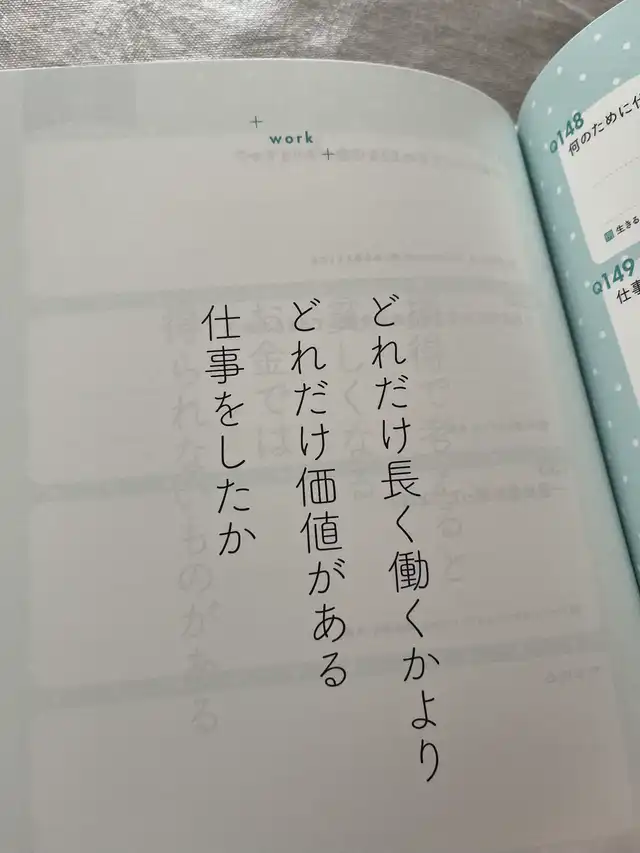 work
どれだけ長く働くかより
どれだけ価値がある
仕事をしたか
Q148
何のために仕
生きる
Q149
仕事